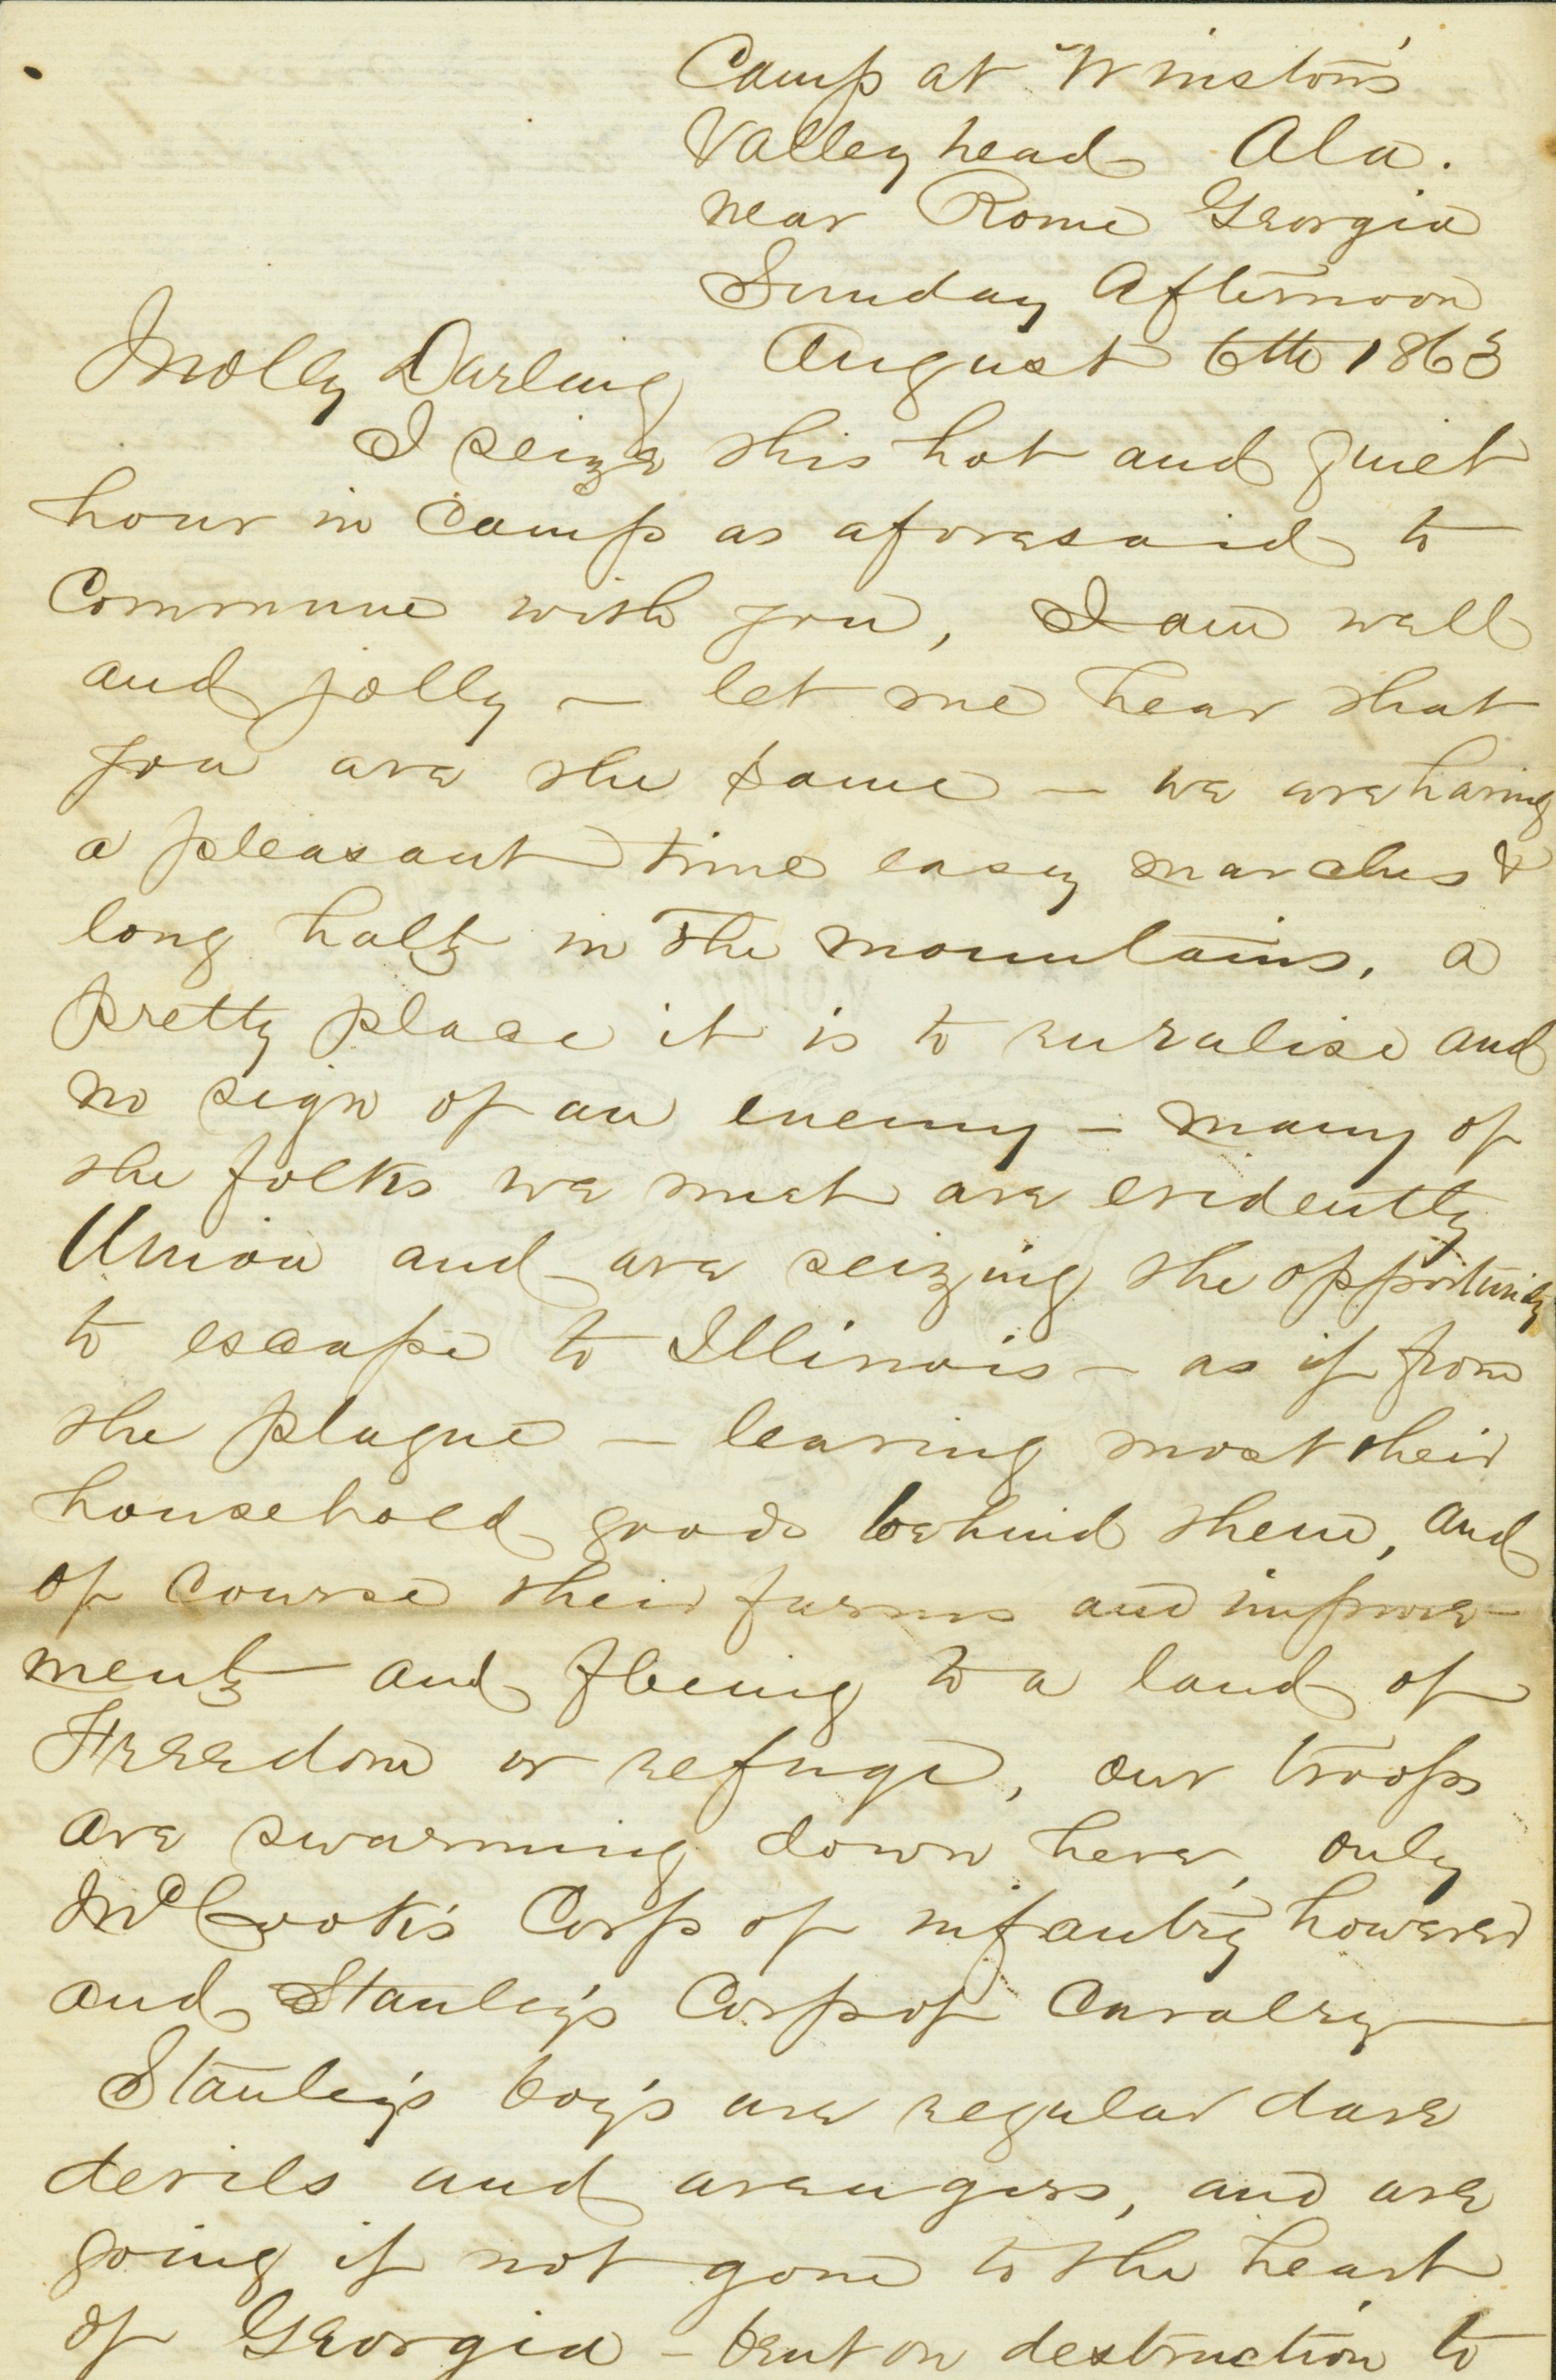 Camp at Winston's
Valley head Ala.
near Rome Georgia
Sunday Afternoon
August 6th 1863
Molly Darling
I seize this hot and quiet
hour in Camp as aforesaid to
Commune with you, I am well
and jolly — let me hear that
you are the same — we are having
a pleasant time easy marches &
long halts in the mountains, a
pretty place it is to ruralise and
no sign of an enemy — many of
the folks we meet are evidently
Union and are seizing the opportunity
to escape to Illinois — as if from
the plague — leaving most their
household goods behind them, and
of course their farms and improve-
ments and fleeing to a land of
Freedom or refuge, our troops
are swarming down here, only
McCook's Corps of infantry however
and Stanley's Corps of Cavalry —
Stanley's boy's are regular dare
devils and avengers, and are
going if not gone to the heart
of Georgia — bent on destruction to